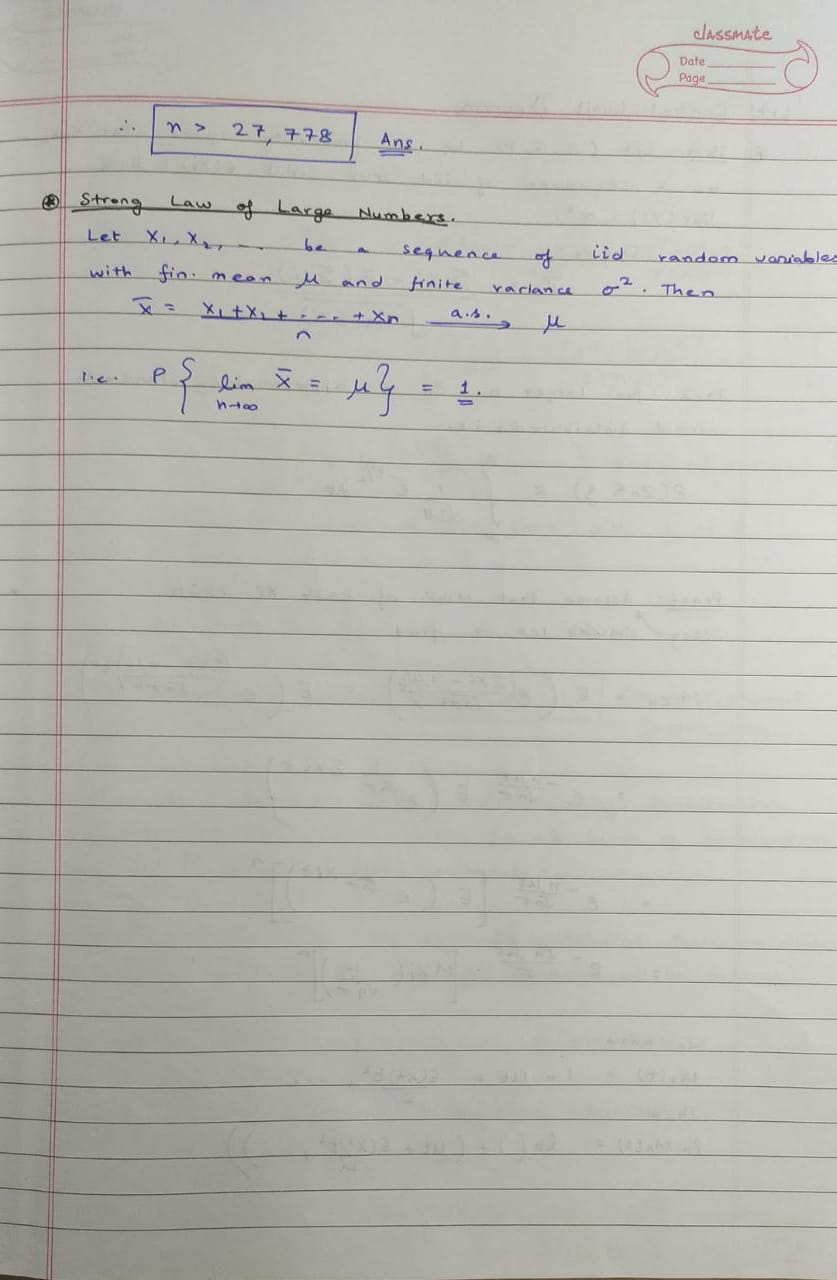 classmate
Date
Page
∴ n > 27,778 Ans.
⊛ Strong Law of Large Numbers.
Let X₁, X₂, ... be a sequence of iid random variables
with fin. mean μ and finite variance σ². Then
X̄ = X₁+X₂+ .... +Xn / n a.s.→ μ
i.e. P{ lim n→∞ X̄ = μ} = 1.